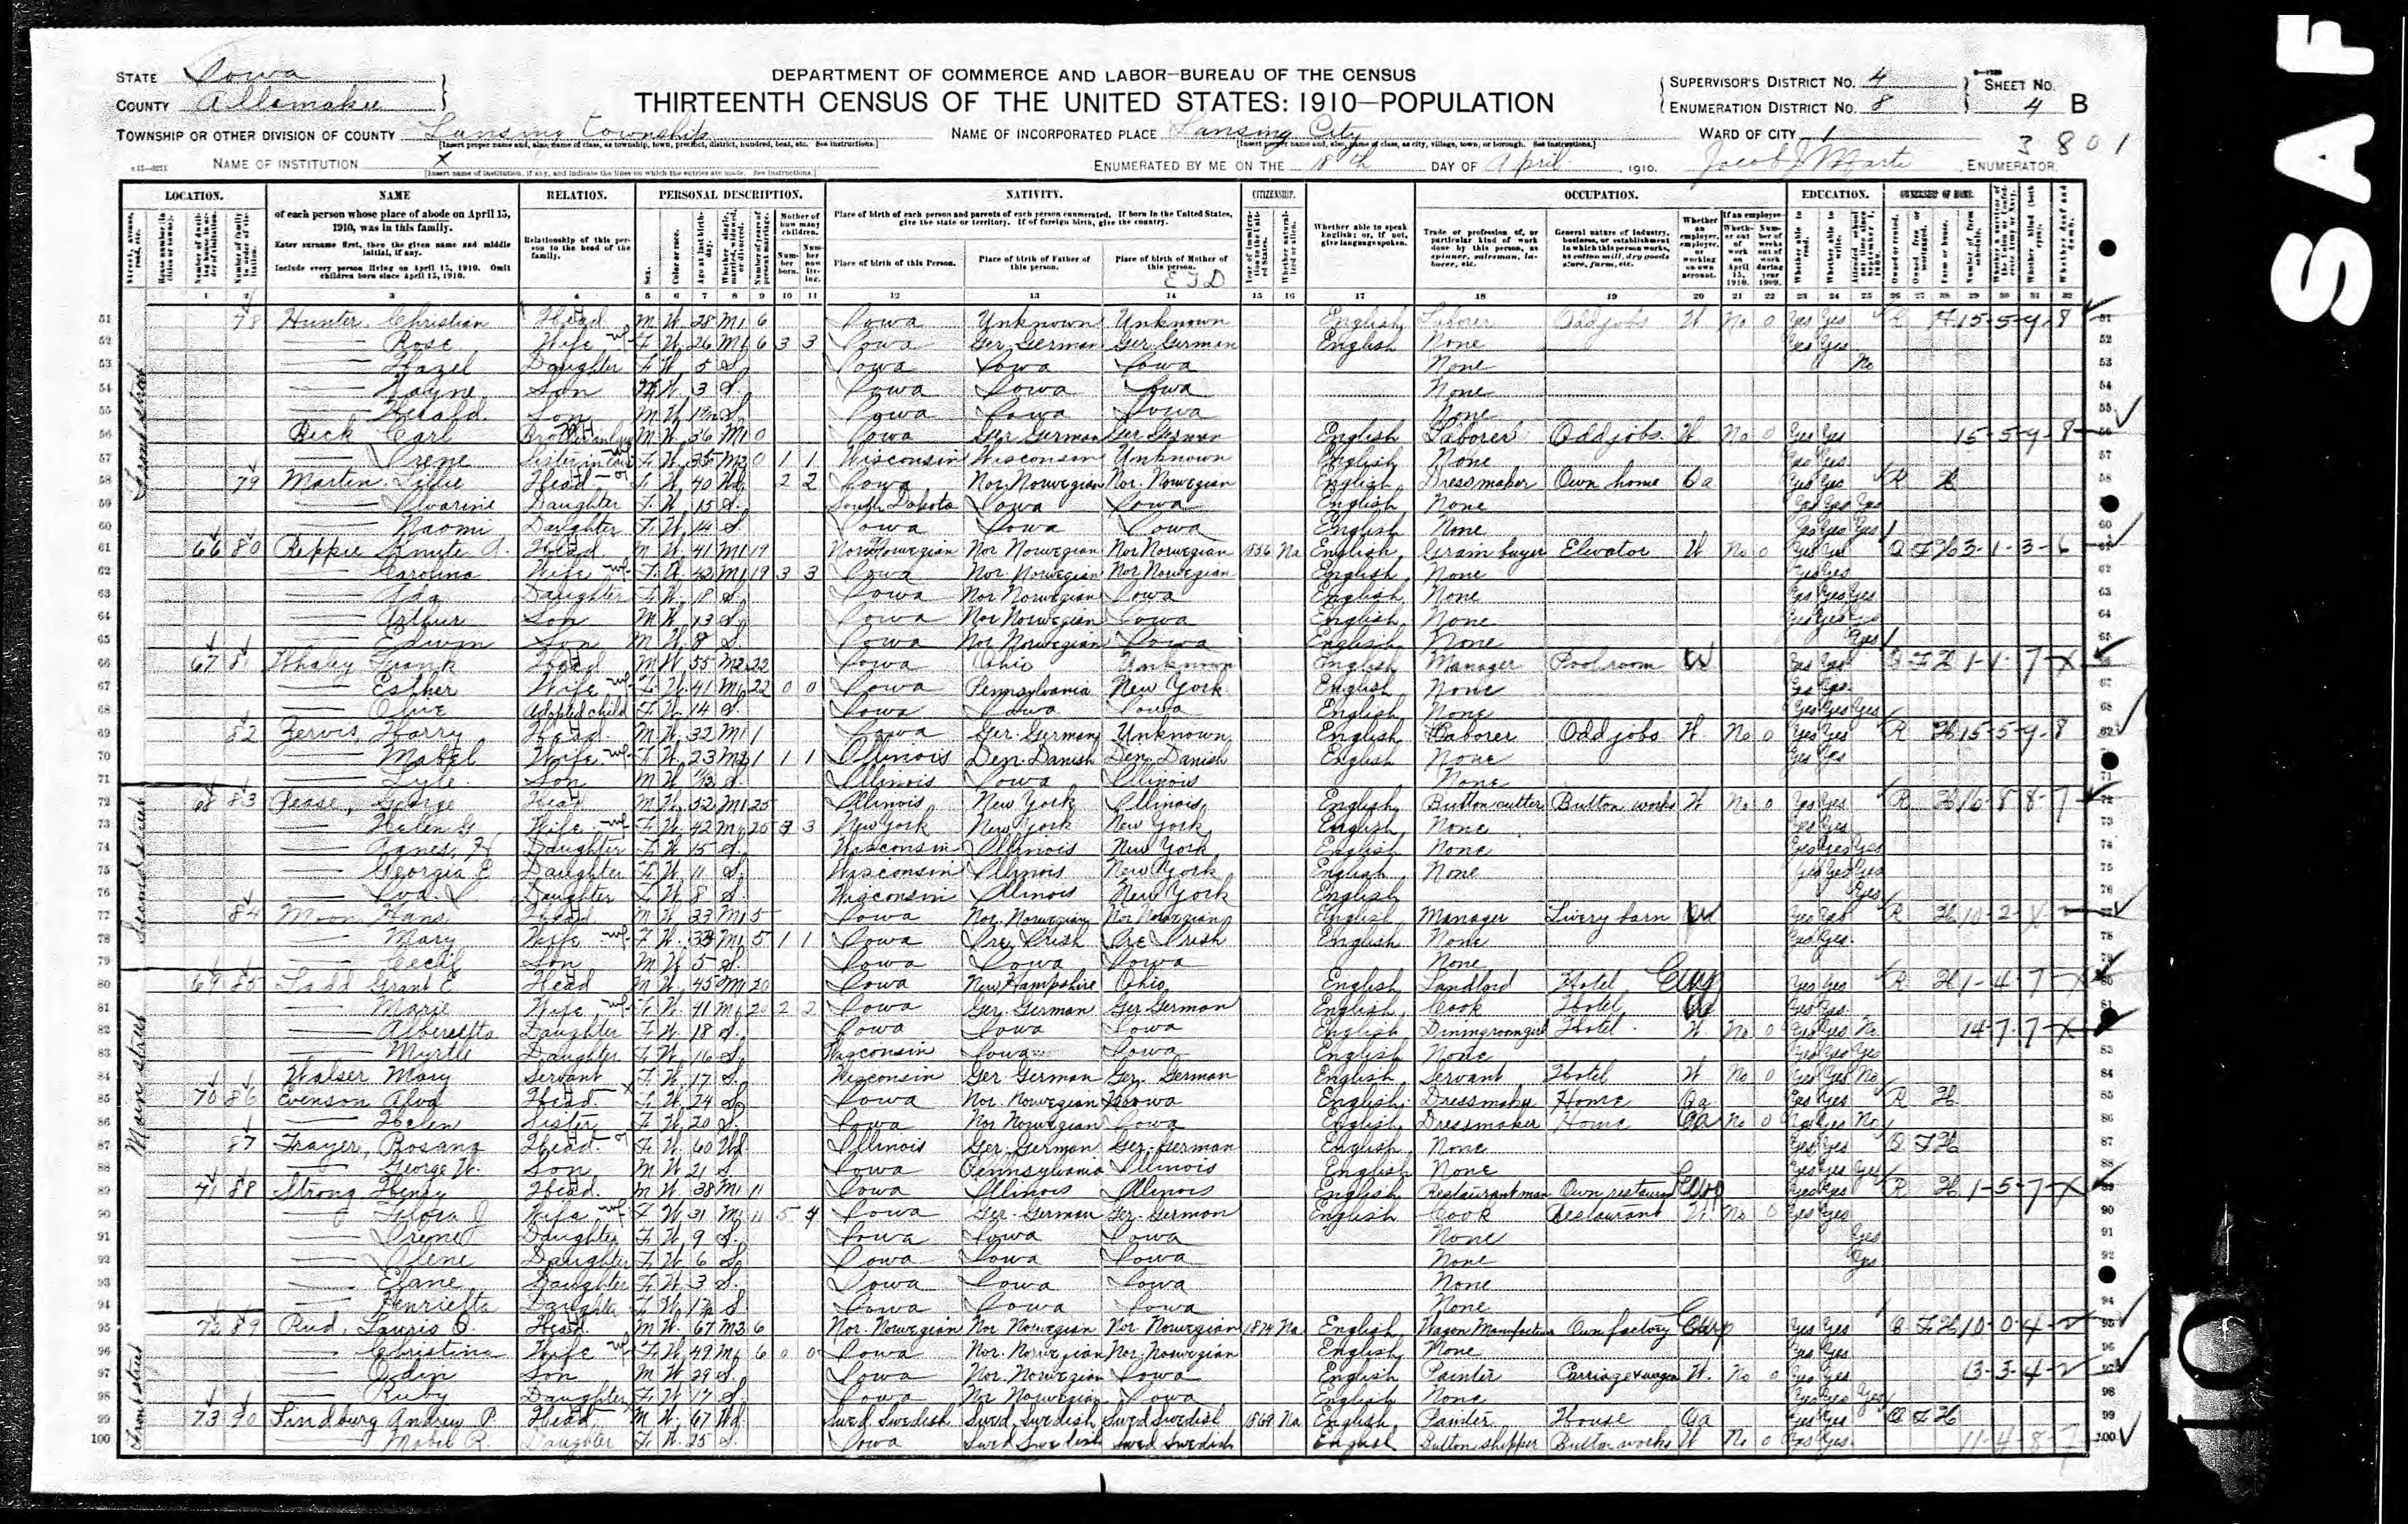 STATE Iowa
COUNTY Allamakee
DEPARTMENT OF COMMERCE AND LABOR—BUREAU OF THE CENSUS
THIRTEENTH CENSUS OF THE UNITED STATES: 1910—POPULATION
SUPERVISOR'S DISTRICT No. 4
ENUMERATION DISTRICT No. 8
SHEET No. 4 B
TOWNSHIP OR OTHER DIVISION OF COUNTY Lansing Township
NAME OF INCORPORATED PLACE Lansing City
WARD OF CITY 1
3801
NAME OF INSTITUTION X
ENUMERATED BY ME ON THE 18th DAY OF April, 1910. Jacob J Marti, ENUMERATOR
LOCATION. NAME RELATION. PERSONAL DESCRIPTION. NATIVITY. CITIZENSHIP. OCCUPATION. EDUCATION. OWNERSHIP OF HOME.
of each person whose place of abode on April 15, 1910, was in this family.
Enter surname first, then the given name and middle initial, if any.
Include every person living on April 15, 1910. Omit children born since April 15, 1910.
Relationship of this person to the head of the family.
Place of birth of each person and parents of each person enumerated. If born in the United States, give the state or territory. If of foreign birth, give the country.
Place of birth of this Person. Place of birth of Father of this person. Place of birth of Mother of this person.
Whether able to speak English; or, if not, give language spoken.
1 2 3 4 5 6 7 8 9 10 11 12 13 14 15 16 17 18 19 20 21 22 23 24 25 26 27 28 29 30 31 32
51 78 Hunter, Christian Head M W 28 M1 6 Iowa Unknown Unknown English Laborer Odd jobs W No 0 Yes Yes R H 15-5-9-8
52 Rose Wife F W 26 M1 6 3 3 Iowa Ger. German Ger. German English None Yes Yes
53 Hazel Daughter F W 5 S Iowa Iowa Iowa None No
54 Wayne Son M W 3 S Iowa Iowa Iowa None
55 Son M W S Iowa Iowa Iowa None
56 Carl M W 36 M1 0 Iowa Ger German Ger German English Laborer Odd jobs W No 0 Yes Yes 15-5-9-8
57 Irene Sister in law F W 35 M2 0 1 1 Wisconsin Wisconsin Unknown English None Yes Yes
58 79 Martin Lillie Head F W 40 Wd 2 2 Iowa Nor. Norwegian Nor. Norwegian English Dressmaker Own home Oa Yes Yes R H
59 Daughter F W 15 S South Dakota Iowa Iowa English None Yes Yes Yes
60 Naomi Daughter F W 14 S Iowa Iowa Iowa English None Yes Yes Yes
61 66 80 Reppie Knute A. Head M W 41 M1 19 Nor Norwegian Nor Norwegian Nor Norwegian Na English Grain buyer Elevator W No 0 Yes Yes O F H 3-1-3-6
62 Carolina Wife F W 42 M1 19 3 3 Iowa Nor. Norwegian Nor Norwegian English None Yes Yes
63 Ada Daughter F W 18 S Iowa Nor Norwegian Iowa English None Yes Yes Yes
64 Arthur Son M W 13 S Iowa Nor Norwegian Iowa English None Yes Yes Yes
65 Edwin Son M W 8 S Iowa Nor Norwegian Iowa English None Yes
66 67 81 Whaley Frank Head M W 55 M2 22 Iowa Ohio Unknown English Manager Pool room Yes Yes O F H 1-1-7-X
67 Esther Wife F W 41 M1 22 0 0 Iowa Pennsylvania New York English None Yes Yes
68 Olive Adopted child F W 14 S Iowa Iowa Iowa English None Yes Yes Yes
69 82 Zervis, Harry Head M W 32 M1 1 Iowa Ger. German Unknown English Laborer Odd jobs W No 0 Yes Yes R H 15-5-9-8
70 Mabel Wife F W 23 1 1 1 Illinois Den. Danish Den. Danish English None Yes Yes
71 Lyle Son M W S Illinois Iowa Illinois None
72 68 83 Pease, George Head M W 52 M1 25 Illinois New York Illinois English Button cutter Button works W No 0 Yes Yes R H 16-8-8-7
73 Helen Wife F W 42 M1 25 3 3 New York New York New York English None Yes Yes
74 Agnes, H Daughter F W 15 S Wisconsin Illinois New York English None Yes Yes Yes
75 Georgia E Daughter F W 11 S Wisconsin Illinois New York English None Yes Yes Yes
76 Daughter F W 8 S Wisconsin Illinois New York English Yes
77 84 Moon Hans Head M W 33 M1 5 Iowa Nor. Norwegian Nor Norwegian English Manager Livery barn Yes Yes R H
78 Mary Wife F W 33 M1 5 1 1 Iowa Ire Irish Ire Irish English None Yes Yes
79 Cecil Son M W 5 S Iowa Iowa Iowa None
80 69 85 Ladd Grant E Head M W 45 M1 20 Iowa New Hampshire Ohio English Landlord Hotel Emp Yes Yes R H 1-4-7-X
81 Marie Wife F W 41 M1 20 2 2 Iowa Ger. German Ger German English Cook Hotel Yes Yes
82 Alberetta Daughter F W 18 S Iowa Iowa Iowa English Diningroom girl Hotel W No 0 Yes Yes No 14-7-7-X
83 Myrtle Daughter F W 16 S Wisconsin Iowa Iowa English None Yes Yes Yes
84 Walser Mary Servant F W 17 S Wisconsin Ger German Ger. German English Servant Hotel W No 0 Yes Yes No
85 70 86 Evenson Alva Head F W 24 S Iowa Nor. Norwegian Iowa English Dressmaker Home Oa Yes Yes R H
86 Helen Sister F W 20 S Iowa Nor Norwegian Iowa English Dressmaker Home Oa No 0 Yes Yes No
87 87 Frayer, Rosana Head F W 60 Wd Illinois Ger. German Ger. German English None Yes Yes O F H
88 George W. Son M W 21 S Iowa Pennsylvania Illinois English None Yes Yes Yes
89 71 88 Strong Henry Head M W 38 M1 11 Iowa Illinois Illinois English Restaurant man Own restaurant Emp Yes Yes R H 1-5-7-X
90 Flora J Wife F W 31 M1 11 5 4 Iowa Ger. German Ger. German English Cook Restaurant W No 0 Yes Yes
91 Irene Daughter F W 9 S Iowa Iowa Iowa None Yes
92 Ilene Daughter F W 6 S Iowa Iowa Iowa None Yes
93 Elane Daughter F W 3 S Iowa Iowa Iowa None
94 Henrietta Daughter F W S Iowa Iowa Iowa None
95 72 89 Rud, Lauris O. Head M W 67 M3 6 Nor. Norwegian Nor Norwegian Nor. Norwegian 1874 Na English Wagon Manufacturer Own factory Emp Yes Yes O F H 10-0-4
96 Christina Wife F W 49 M1 6 0 0 Iowa Nor. Norwegian Nor. Norwegian English None Yes Yes
97 Odin Son M W 29 S Iowa Nor. Norwegian Iowa English Painter Carriage & wagon W No 0 Yes Yes 13-3-4
98 Ruby Daughter F W 17 S Iowa Nor Norwegian Iowa English None Yes Yes Yes
99 73 90 Lindburg Andrew P. Head M W 67 Wd Swed. Swedish Swed. Swedish Swed Swedish 1869 Na English Painter House Oa Yes Yes O F H
100 Mabel R. Daughter F W 25 S Iowa Swed Swedish Swed Swedish English Button shipper Button works W No 0 Yes Yes 11-4-8-7
Front street
Second street
Main street
Front street
SAF